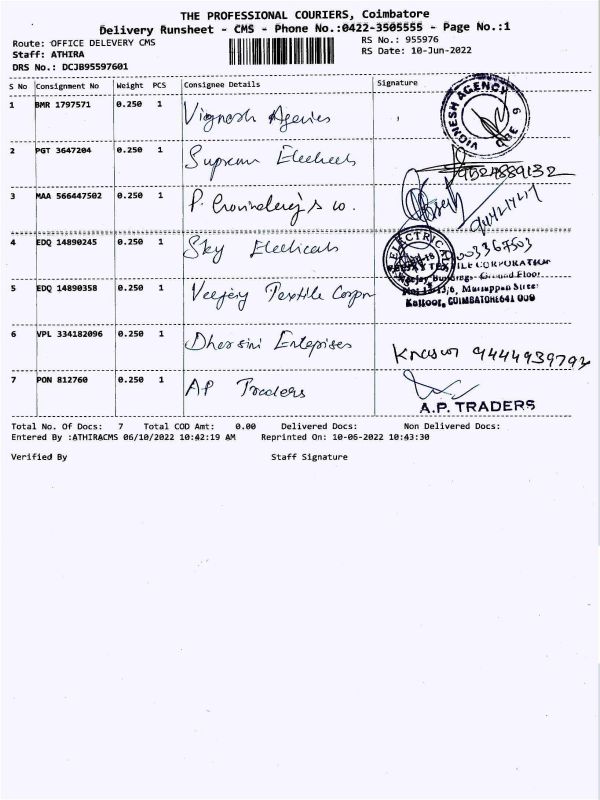 THE PROFESSIONAL COURIERS, Coimbatore
Delivery Runsheet - CMS - Phone No.:0422-3505555 - Page No.:1
Route: OFFICE DELEVERY CMS
RS No.: 955976
Staff: ATHIRA
RS Date: 10-Jun-2022
DRS No.: DCJB95597601
S No Consignment No Weight PCS Consignee Details Signature
1 BMR 1797571 0.250 1 Vignesh Agencies
VIGNESH AGENCY
CBE
2 PGT 3647204 0.250 1 Supreem Electricals
9524889132
3 MAA 566447502 0.250 1 P. Govindaraj & co.
4 EDQ 14890245 0.250 1 Sky Electricals
ELECTRICAL
TEXTILE CORPORATION
Buildings Ground Floor
5 EDQ 14890358 0.250 1 Veejay Textile Corpn
Kattoor, COIMBATORE 641 009
6 VPL 334182096 0.250 1 Dharsini Enteprises
7 PON 812760 0.250 1 AP Traders
A.P. TRADERS
Total No. Of Docs: 7 Total COD Amt: 0.00 Delivered Docs: Non Delivered Docs:
Entered By :ATHIRACMS 06/10/2022 10:42:19 AM Reprinted On: 10-06-2022 10:43:30
Verified By Staff Signature